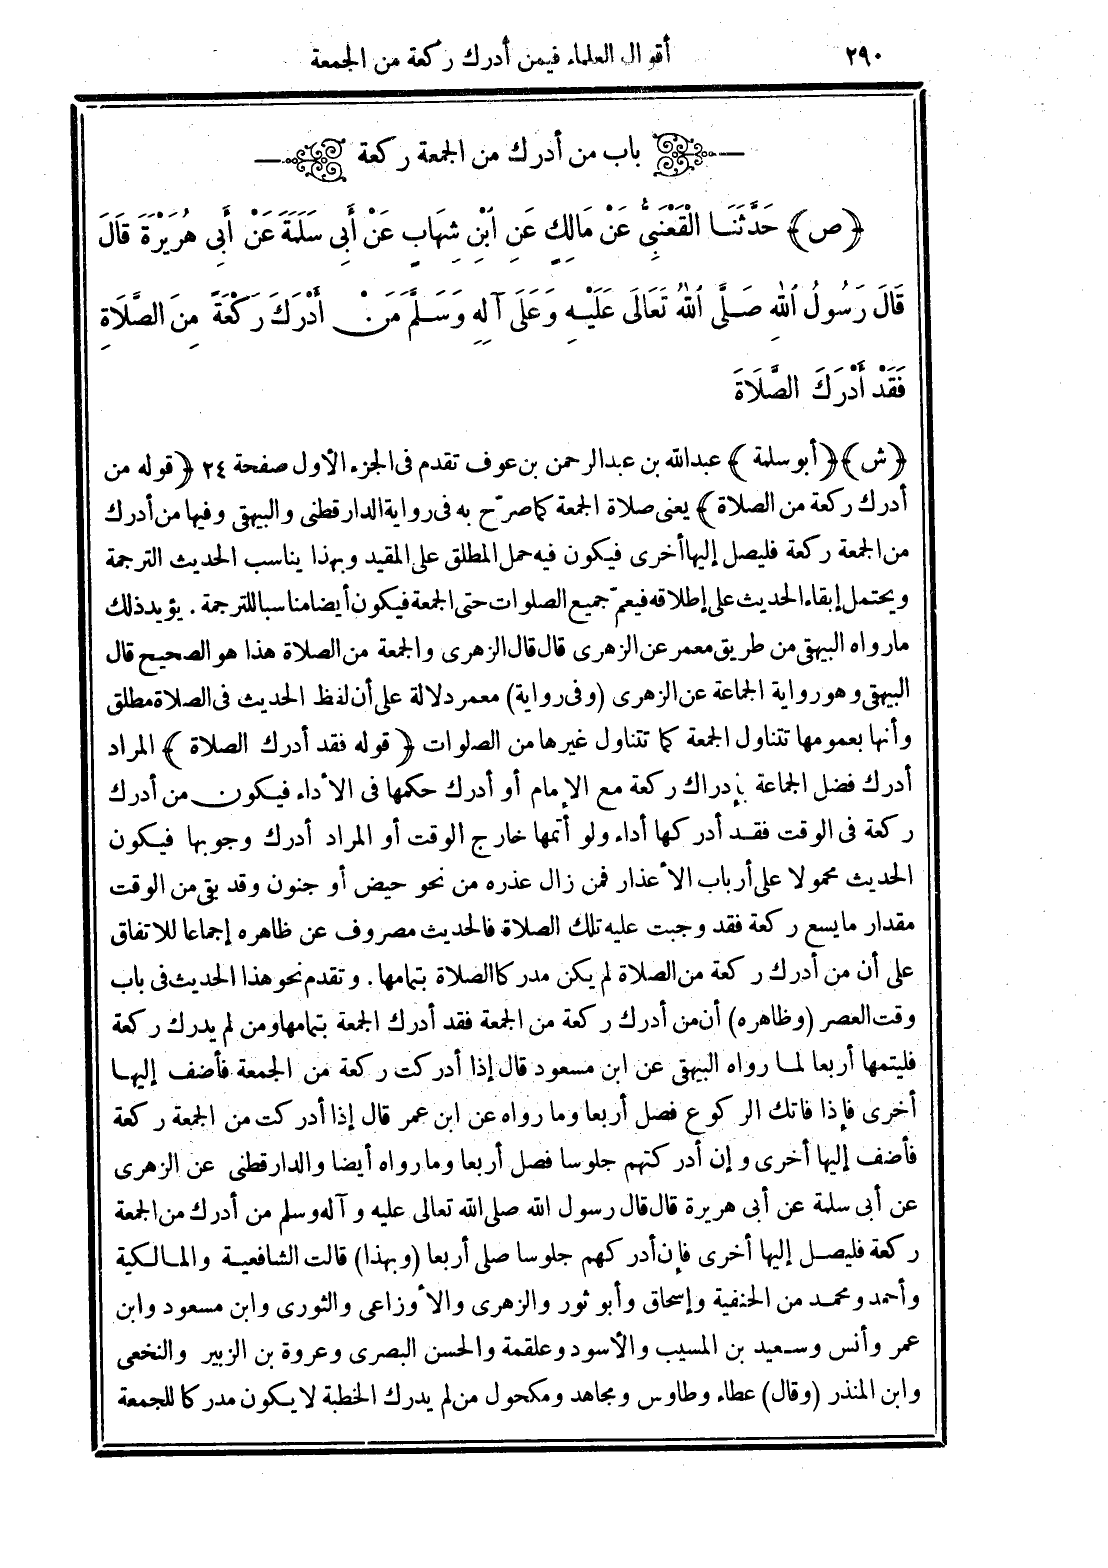 ٢٩٠ أقوال العلماء فيمن أدرك ركعة من الجمعة
باب من أدرك من الجمعة ركعة
﴿ص﴾ حَدَّثَنَا الْقَعْنَبِيُّ عَنْ مَالِكٍ عَنِ ابْنِ شِهَابٍ عَنْ أَبِى سَلَمَةَ عَنْ أَبِى هُرَيْرَةَ قَالَ
قَالَ رَسُولُ اللهِ صَلَّى اللهُ تَعَالَى عَلَيْهِ وَعَلَى آلِهِ وَسَلَّمَ مَنْ أَدْرَكَ رَكْعَةً مِنَ الصَّلَاةِ
فَقَدْ أَدْرَكَ الصَّلَاةَ
﴿ش﴾ ﴿أبو سلمة﴾ عبدالله بن عبدالرحمن بن عوف تقدم فى الجزء الأول صفحة ٢٤ ﴿قوله من
أدرك ركعة من الصلاة﴾ يعنى صلاة الجمعة كما صرّح به فى رواية الدارقطنى والبيهقى وفيها من أدرك
من الجمعة ركعة فليصل إليها أخرى فيكون فيه حمل المطلق على المقيد وبهذا يناسب الحديث الترجمة
ويحتمل إبقاء الحديث على إطلاقه فيعمّ جميع الصلوات حتى الجمعة فيكون أيضا مناسبا للترجمة. يؤيد ذلك
مارواه البيهقى من طريق معمر عن الزهرى قال قال الزهرى والجمعة من الصلاة هذا هو الصحيح قال
البيهقى وهو رواية الجماعة عن الزهرى (وفى رواية) معمر دلالة على أن لفظ الحديث فى الصلاة مطلق
وأنها بعمومها تتناول الجمعة كما تتناول غيرها من الصلوات ﴿قوله فقد أدرك الصلاة﴾ المراد
أدرك فضل الجماعة بإدراك ركعة مع الإمام أو أدرك حكمها فى الأداء فيكون من أدرك
ركعة فى الوقت فقد أدركها أداء ولو أتمها خارج الوقت أو المراد أدرك وجوبها فيكون
الحديث محمولا على أرباب الأعذار فمن زال عذره من نحو حيض أو جنون وقد بقى من الوقت
مقدار مايسع ركعة فقد وجبت عليه تلك الصلاة فالحديث مصروف عن ظاهره إجماعا للاتفاق
على أن من أدرك ركعة من الصلاة لم يكن مدركا الصلاة بتمامها. وتقدم نحو هذا الحديث فى باب
وقت العصر (وظاهره) أن من أدرك ركعة من الجمعة فقد أدرك الجمعة بتمامها ومن لم يدرك ركعة
فليتمها أربعا لما رواه البيهقى عن ابن مسعود قال إذا أدركت ركعة من الجمعة فأضف إليها
أخرى فإذا فاتك الركوع فصل أربعا وما رواه عن ابن عمر قال إذا أدركت من الجمعة ركعة
فأضف إليها أخرى وإن أدركتهم جلوسا فصل أربعا وما رواه أيضا والدارقطنى عن الزهرى
عن أبى سلمة عن أبى هريرة قال قال رسول الله صلى الله تعالى عليه وآله وسلم من أدرك من الجمعة
ركعة فليصل إليها أخرى فإن أدركهم جلوسا صلى أربعا (وبهذا) قالت الشافعية والمالكية
وأحمد ومحمد من الحنفية وإسحاق وأبو ثور والزهرى والأوزاعى والثورى وابن مسعود وابن
عمر وأنس وسعيد بن المسيب والأسود وعلقمة والحسن البصرى وعروة بن الزبير والنخعى
وابن المنذر (وقال) عطاء وطاوس ومجاهد ومكحول من لم يدرك الخطبة لا يكون مدركا للجمعة